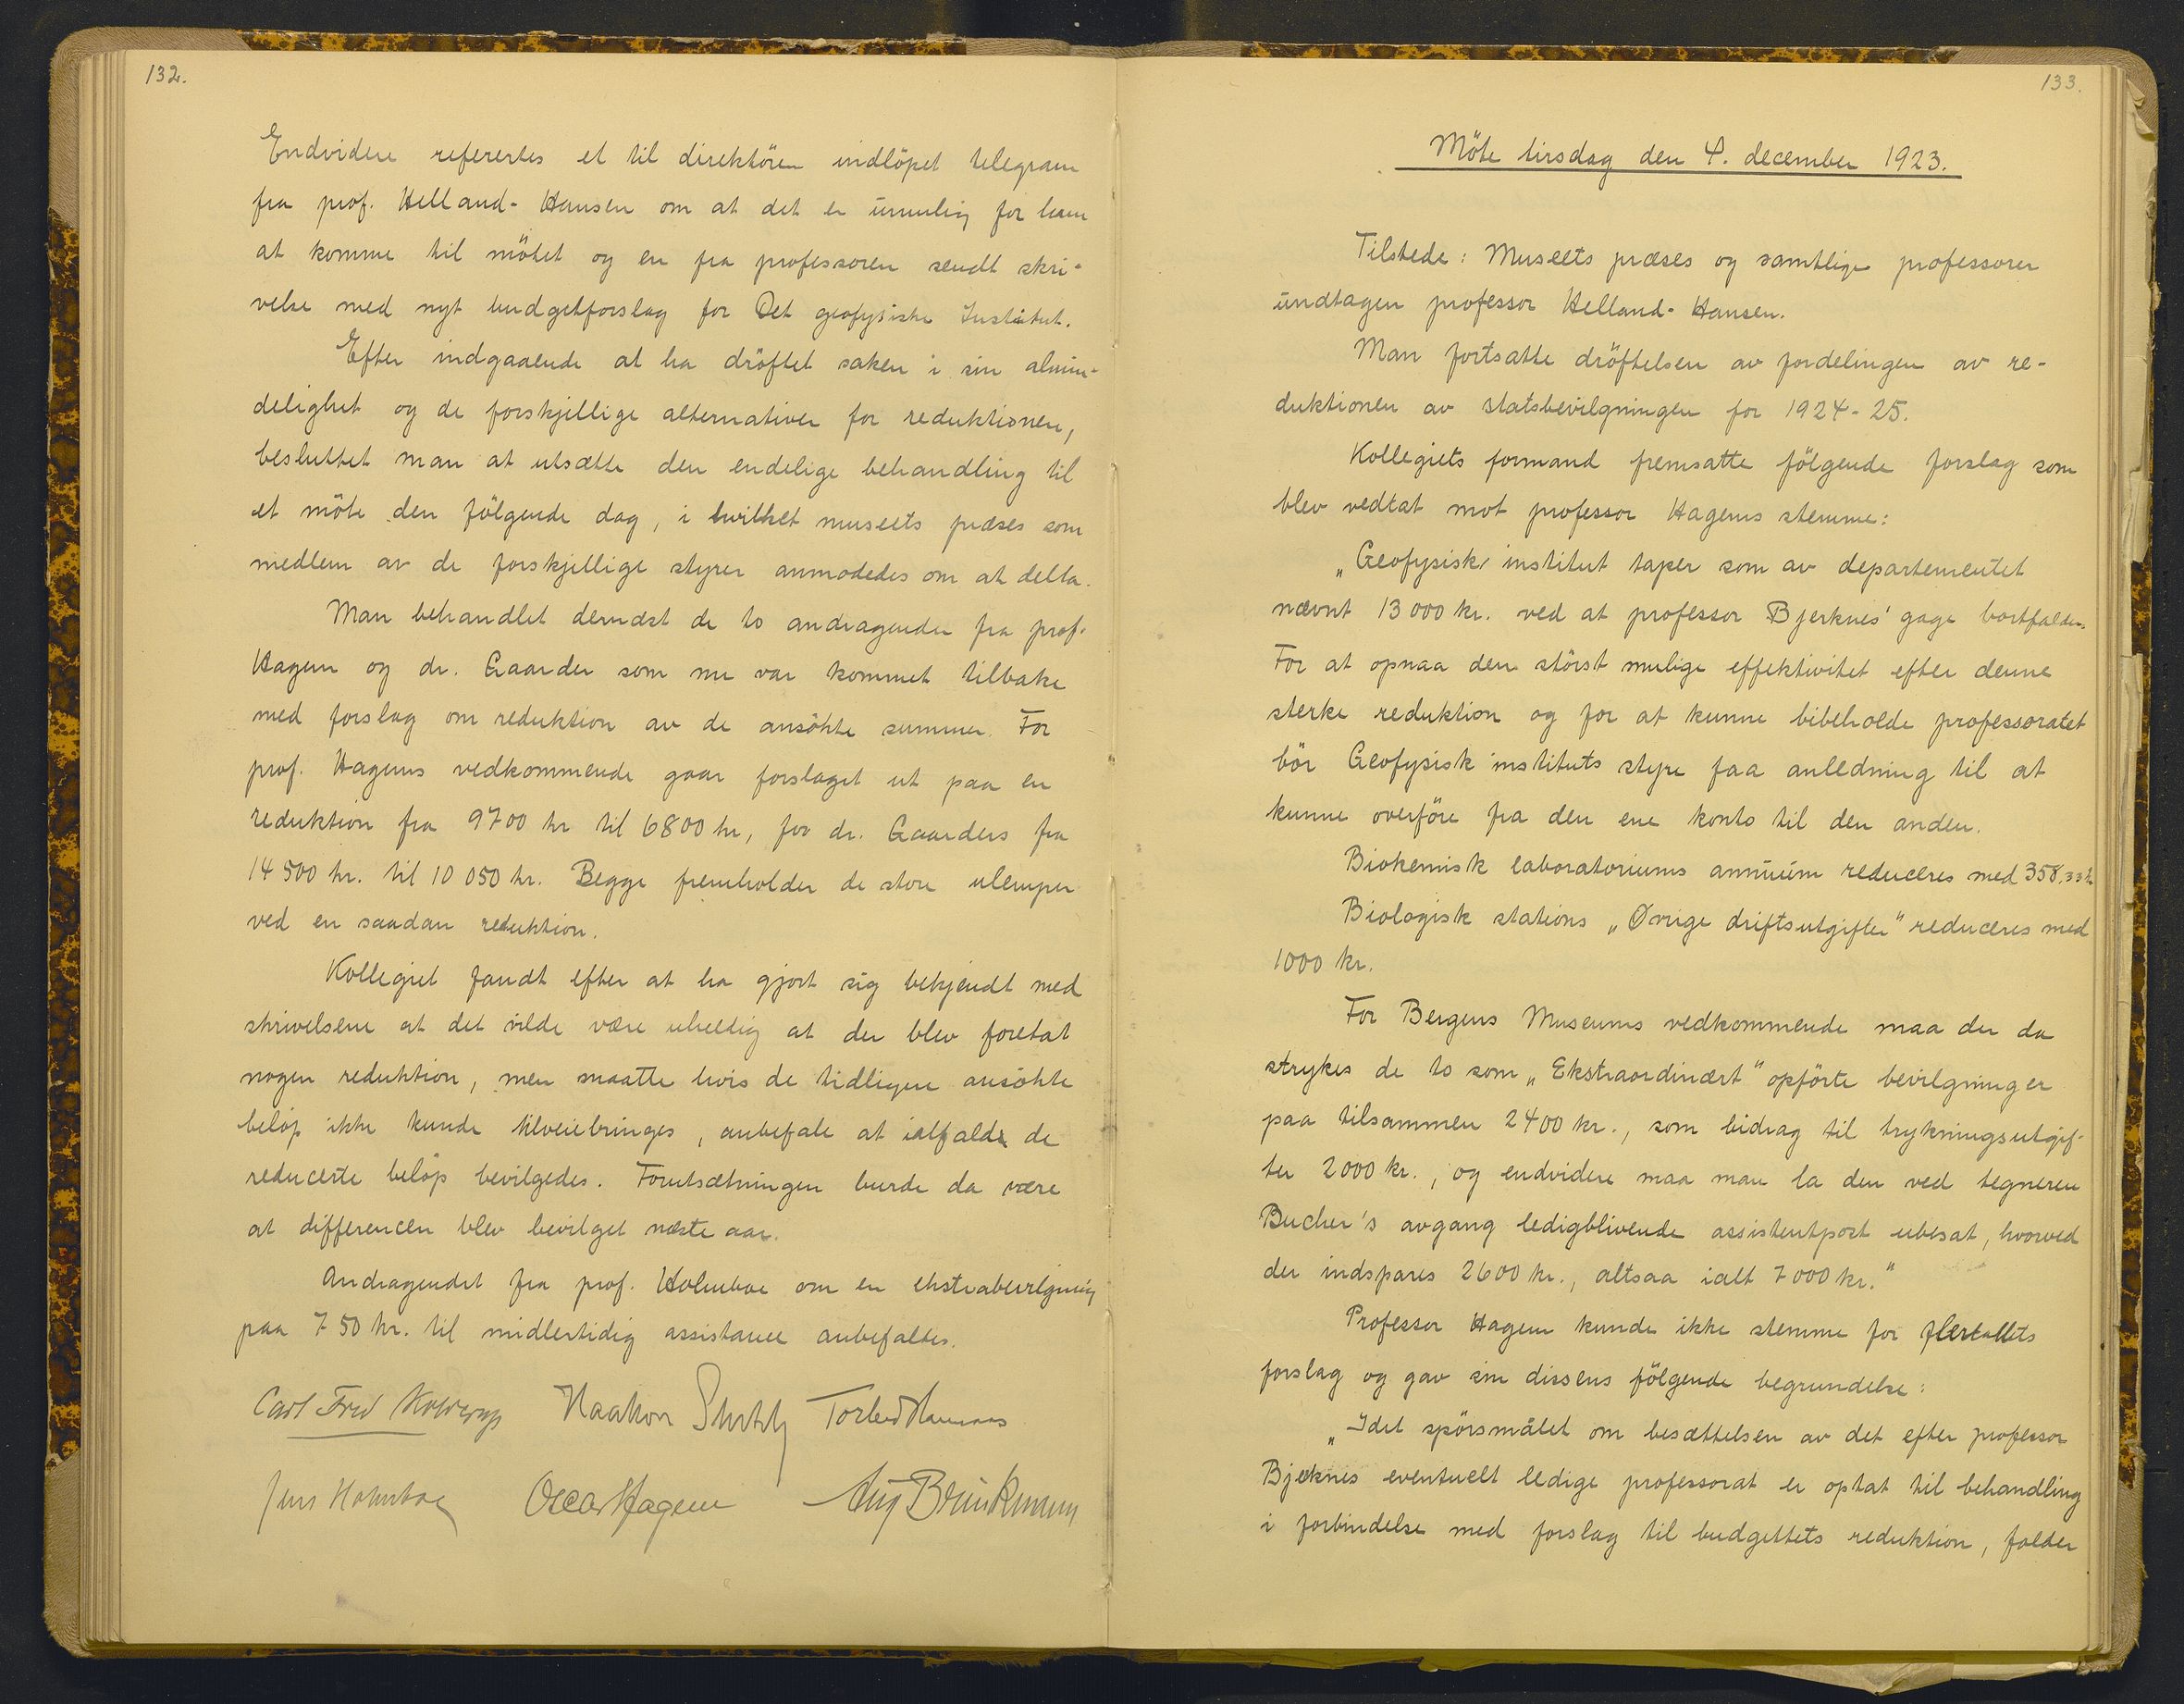 132.
Endvidere refereres et til direktören indlöpet telegram
fra prof. Helland-Hansen om at det er umulig for ham
at komme til mötet og en fra professoren sendt skri-
velse med nyt budgetforslag for Det geofysiske Institut.
Efter indgaaende at ha dröftet saken i sin almin-
delighet og de forskjellige alternativer for reduktionen,
besluttet man at utsætte den endelige behandling til
et möte den fölgende dag, i hvilket museets præses som
medlem av de forskjellige styrer anmodedes om at delta.
Man behandlet dernæst de to andragender fra prof.
Hagem og dr. Gaarder som nu var kommet tilbake
med forslag om reduktion av de ansökte summer. For
prof. Hagems vedkommende gaar forslaget ut paa en
reduktion fra 9700 kr til 6800 kr, for dr. Gaarders fra
14 500 kr. til 10 050 kr. Begge fremholder de store ulemper
ved en saadan reduktion.
Kollegiet fandt efter at ha gjort sig bekjendt med
skrivelsene at det vilde være uheldig at der blev foretat
nogen reduktion, men maatte hvis de tidligere ansökte
belöp ikke kunde tilveiebringes, anbefale at ialfald de
reducerte belöp bevilgedes. Forutsætningen burde da være
at differencen blev bevilget næste aar.
Andragendet fra prof. Holmboe om en ekstrabevilgning
paa 750 kr. til midlertidig assistance anbefaltes.
Carl Fred Kolderup Haakon Shetelig Torleiv Hannaas
Jens Holmboe Oscar Hagem Aug Brinkmann
133.
Möte tirsdag den 4. december 1923.
Tilstede: Museets præses og samtlige professorer
undtagen professor Helland-Hansen.
Man fortsatte dröftelsen av fordelingen av re-
duktionen av statsbevilgningen for 1924-25.
Kollegiets formand fremsatte fölgende forslag som
blev vedtat mot professor Hagems stemme:
„Geofysisk institut taper som av departementet
nævnt 13 000 kr. ved at professor Bjerknes' gage bortfalder.
For at opnaa den störst mulige effektivitet efter denne
sterke reduktion og for at kunne bibeholde professoratet
bör Geofysisk instituts styre faa anledning til at
kunne overföre fra den ene konto til den anden.
Biokemisk laboratoriums annuum reduceres med 358,33 kr
Biologisk stations „Øvrige driftsutgifter" reduceres med
1000 kr.
For Bergens Museums vedkommende maa der da
strykes de to som „Ekstraordinært" opförte bevilgninger
paa tilsammen 2400 kr., som bidrag til trykningsutgif-
ter 2000 kr., og endvidere maa man la den ved tegneren
Bucher's avgang ledigblivende assistentpost ubesat, hvorved
der indspares 2600 kr., altsaa ialt 7000 kr."
Professor Hagem kunde ikke stemme for flertallets
forslag og gav sin dissens fölgende begrundelse:
„Idet spörsmålet om besættelsen av det efter professor
Bjerknes eventuelt ledige professorat er optat til behandling
i forbindelse med forslag til budgettets reduktion, falder